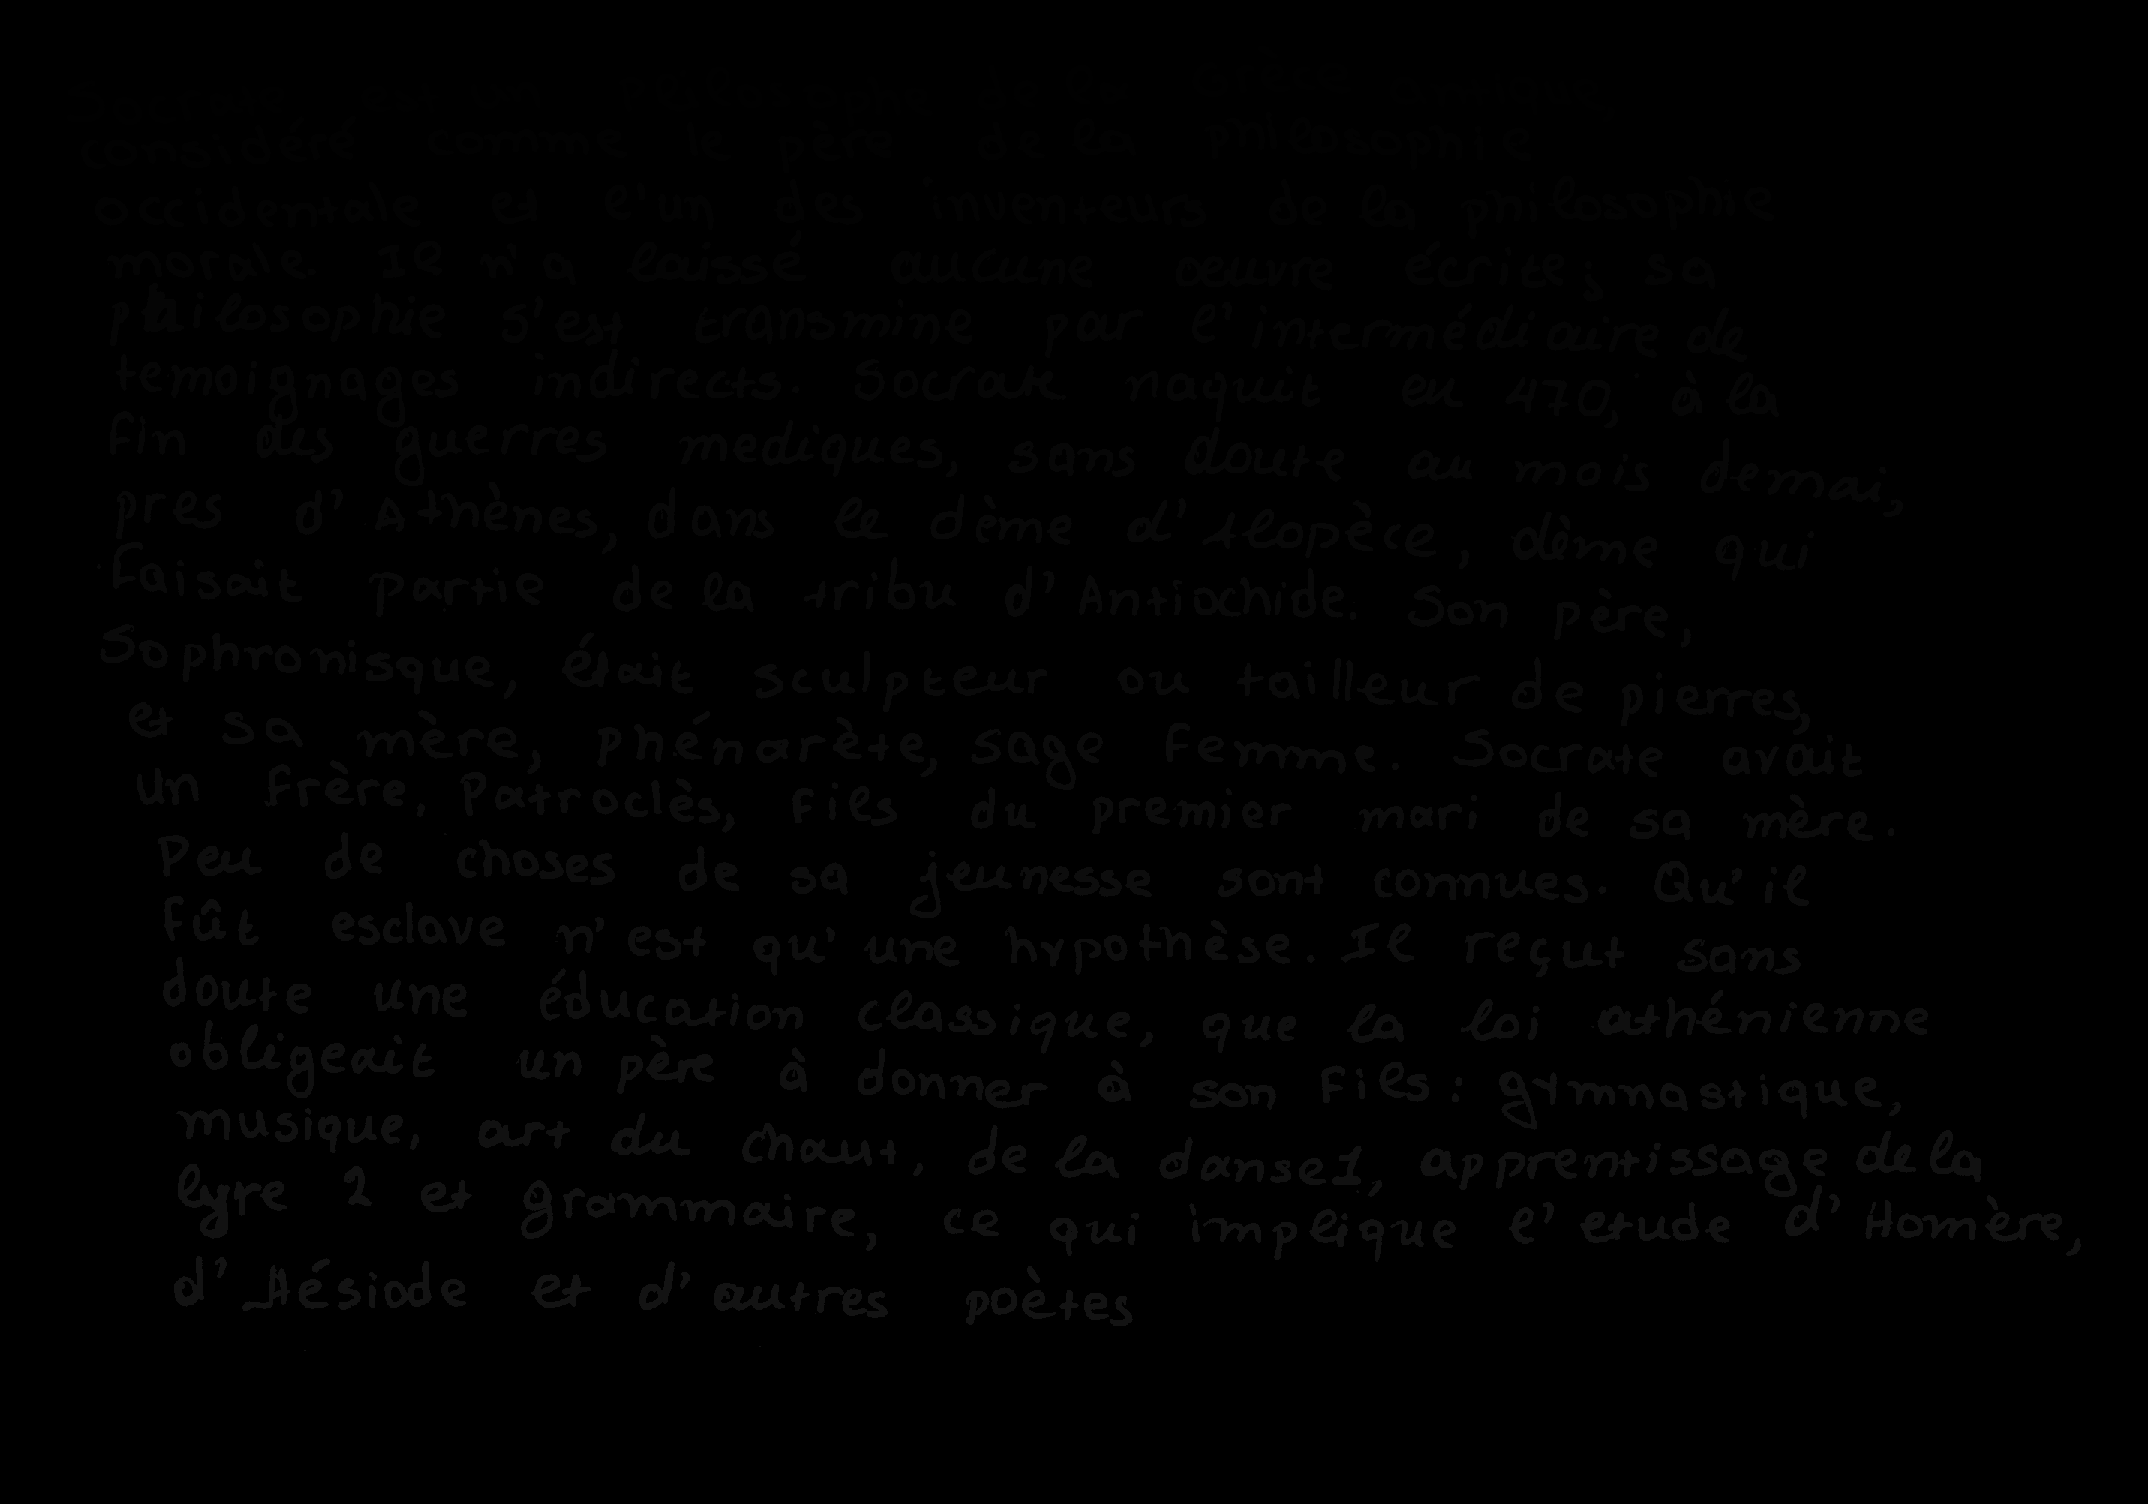 Socrate est un philosophe de la Grèce antique,
considéré comme le père de la philosophie
occidentale et l'un des inventeurs de la philosophie
morale. Il n'a laissé aucune œuvre écrite; sa
philosophie s'est transmine par l'intermédiaire de
temoignages indirects. Socrate naquit en 470, à la
fin des guerres mediques, sans doute au mois demai,
pres d'Athènes, dans le dème d'Alopèce, dème qui
faisait partie de la tribu d'Antiochide. Son père,
Sophronisque, était sculpteur ou tailleur de pierres,
et sa mère, phénarète, sage femme. Socrate avait
un frère, Patroclès, fils du premier mari de sa mère.
Peu de choses de sa jeunesse sont connues. Qu'il
fût esclave n'est qu'une hypothèse. Il reçut sans
doute une éducation classique, que la loi athénienne
obligeait un père à donner à son fils: gymnastique,
musique, art du chaut, de la danse1, apprentissage de la
lyre 2 et grammaire, ce qui implique l'etude d'Homère,
d'Hésiode et d'autres poètes